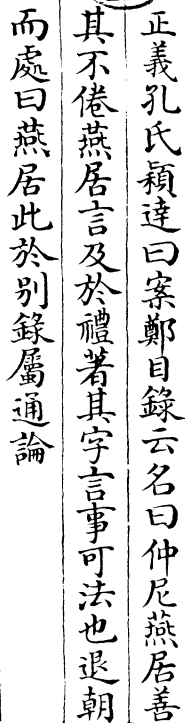 正義孔氏穎達曰案鄭目錄云名曰仲尼燕居善
其不倦燕居言及於禮著其字言事可法也退朝
而處曰燕居此於别錄屬通論